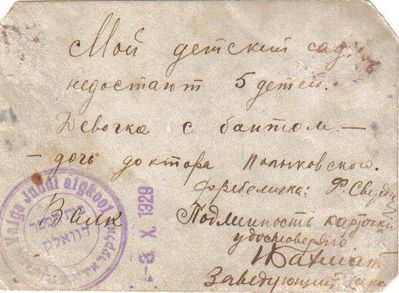 Мой детский сад.
недостаёт 5 детей.
Девочка с бантом. —
— дочь доктора
фребеличка:
Валк
Подлинность карточки
удостоверяю
Заведующий
Valge Juudi algkool
- 3 X 1929